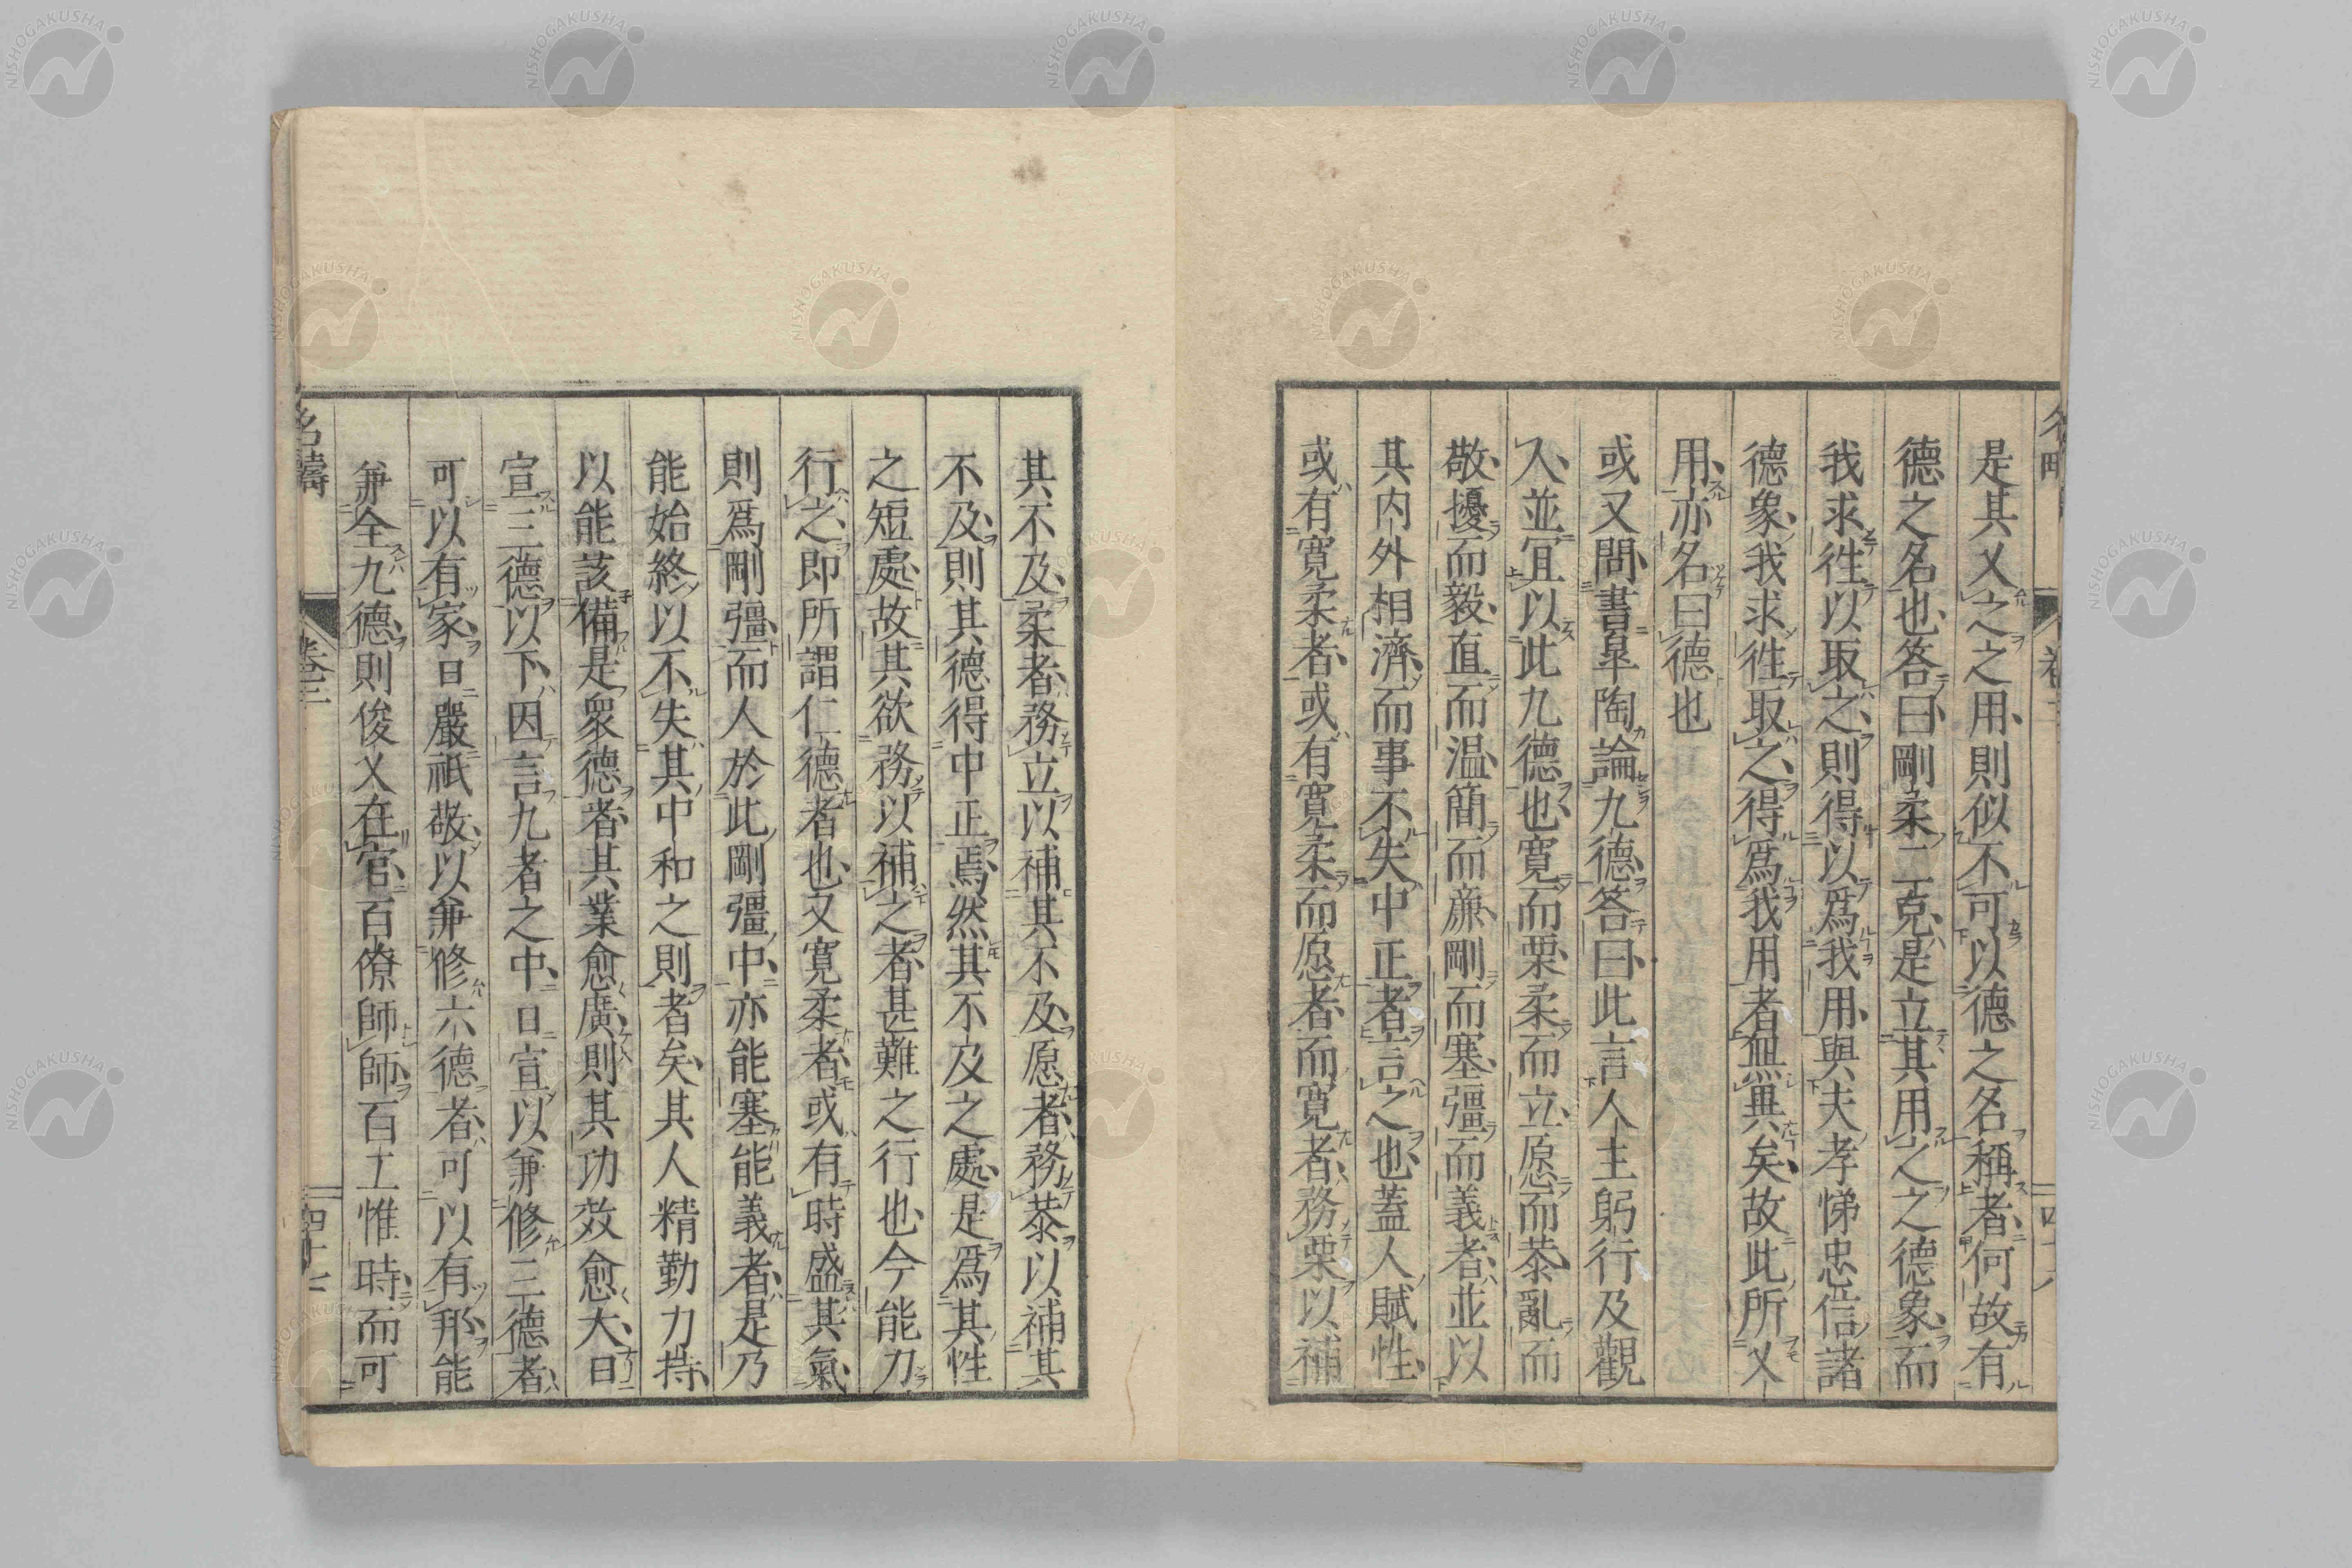 是其乂之之用則似不可以德之名稱者何故有
德之名也答曰剛柔二克是立其用之之德象而
我求徃以取之則得以爲我用與夫孝悌忠信諸
德象我求徃取之得爲我用者無異矣故此所乂
用亦名曰德也
或又問書皐陶論九德答曰此言人主躬行及觀
人並宜以此九德也寬而栗柔而立愿而恭亂而
敬擾而毅直而温簡而廉剛而塞彊而義者並以
其内外相濟而事不失中正者言之也蓋人賦性
或有寬柔者或有寬柔而愿者而寬者務栗以補
其不及柔者務立以補其不及愿者務恭以補其
不及則其德得中正焉然其不及之處是爲其性
之短處故其欲務以補之者甚難之行也今能力
行之即所謂仁德者也又寬柔者或有時盛其氣
則爲剛彊而人於此剛彊中亦能塞能義者是乃
能始終以不失其中和之則者矣其人精勤力持
以能該備是衆德者其業愈廣則其功效愈大曰
宣三德以下因言九者之中日宣以兼修三德者
可以有家日嚴祇敬以兼修六德者可以有邦能
兼全九德則俊乂在官百僚師師百工惟時而可
名疇
卷三
四十七
NISHOGAKUSHA